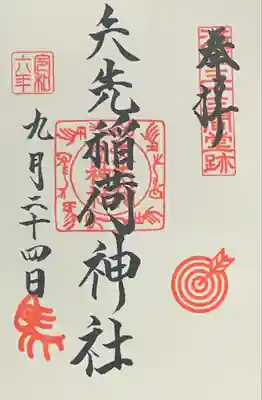 奉拝
矢先稲荷神社
令和
六年
九月二十四日